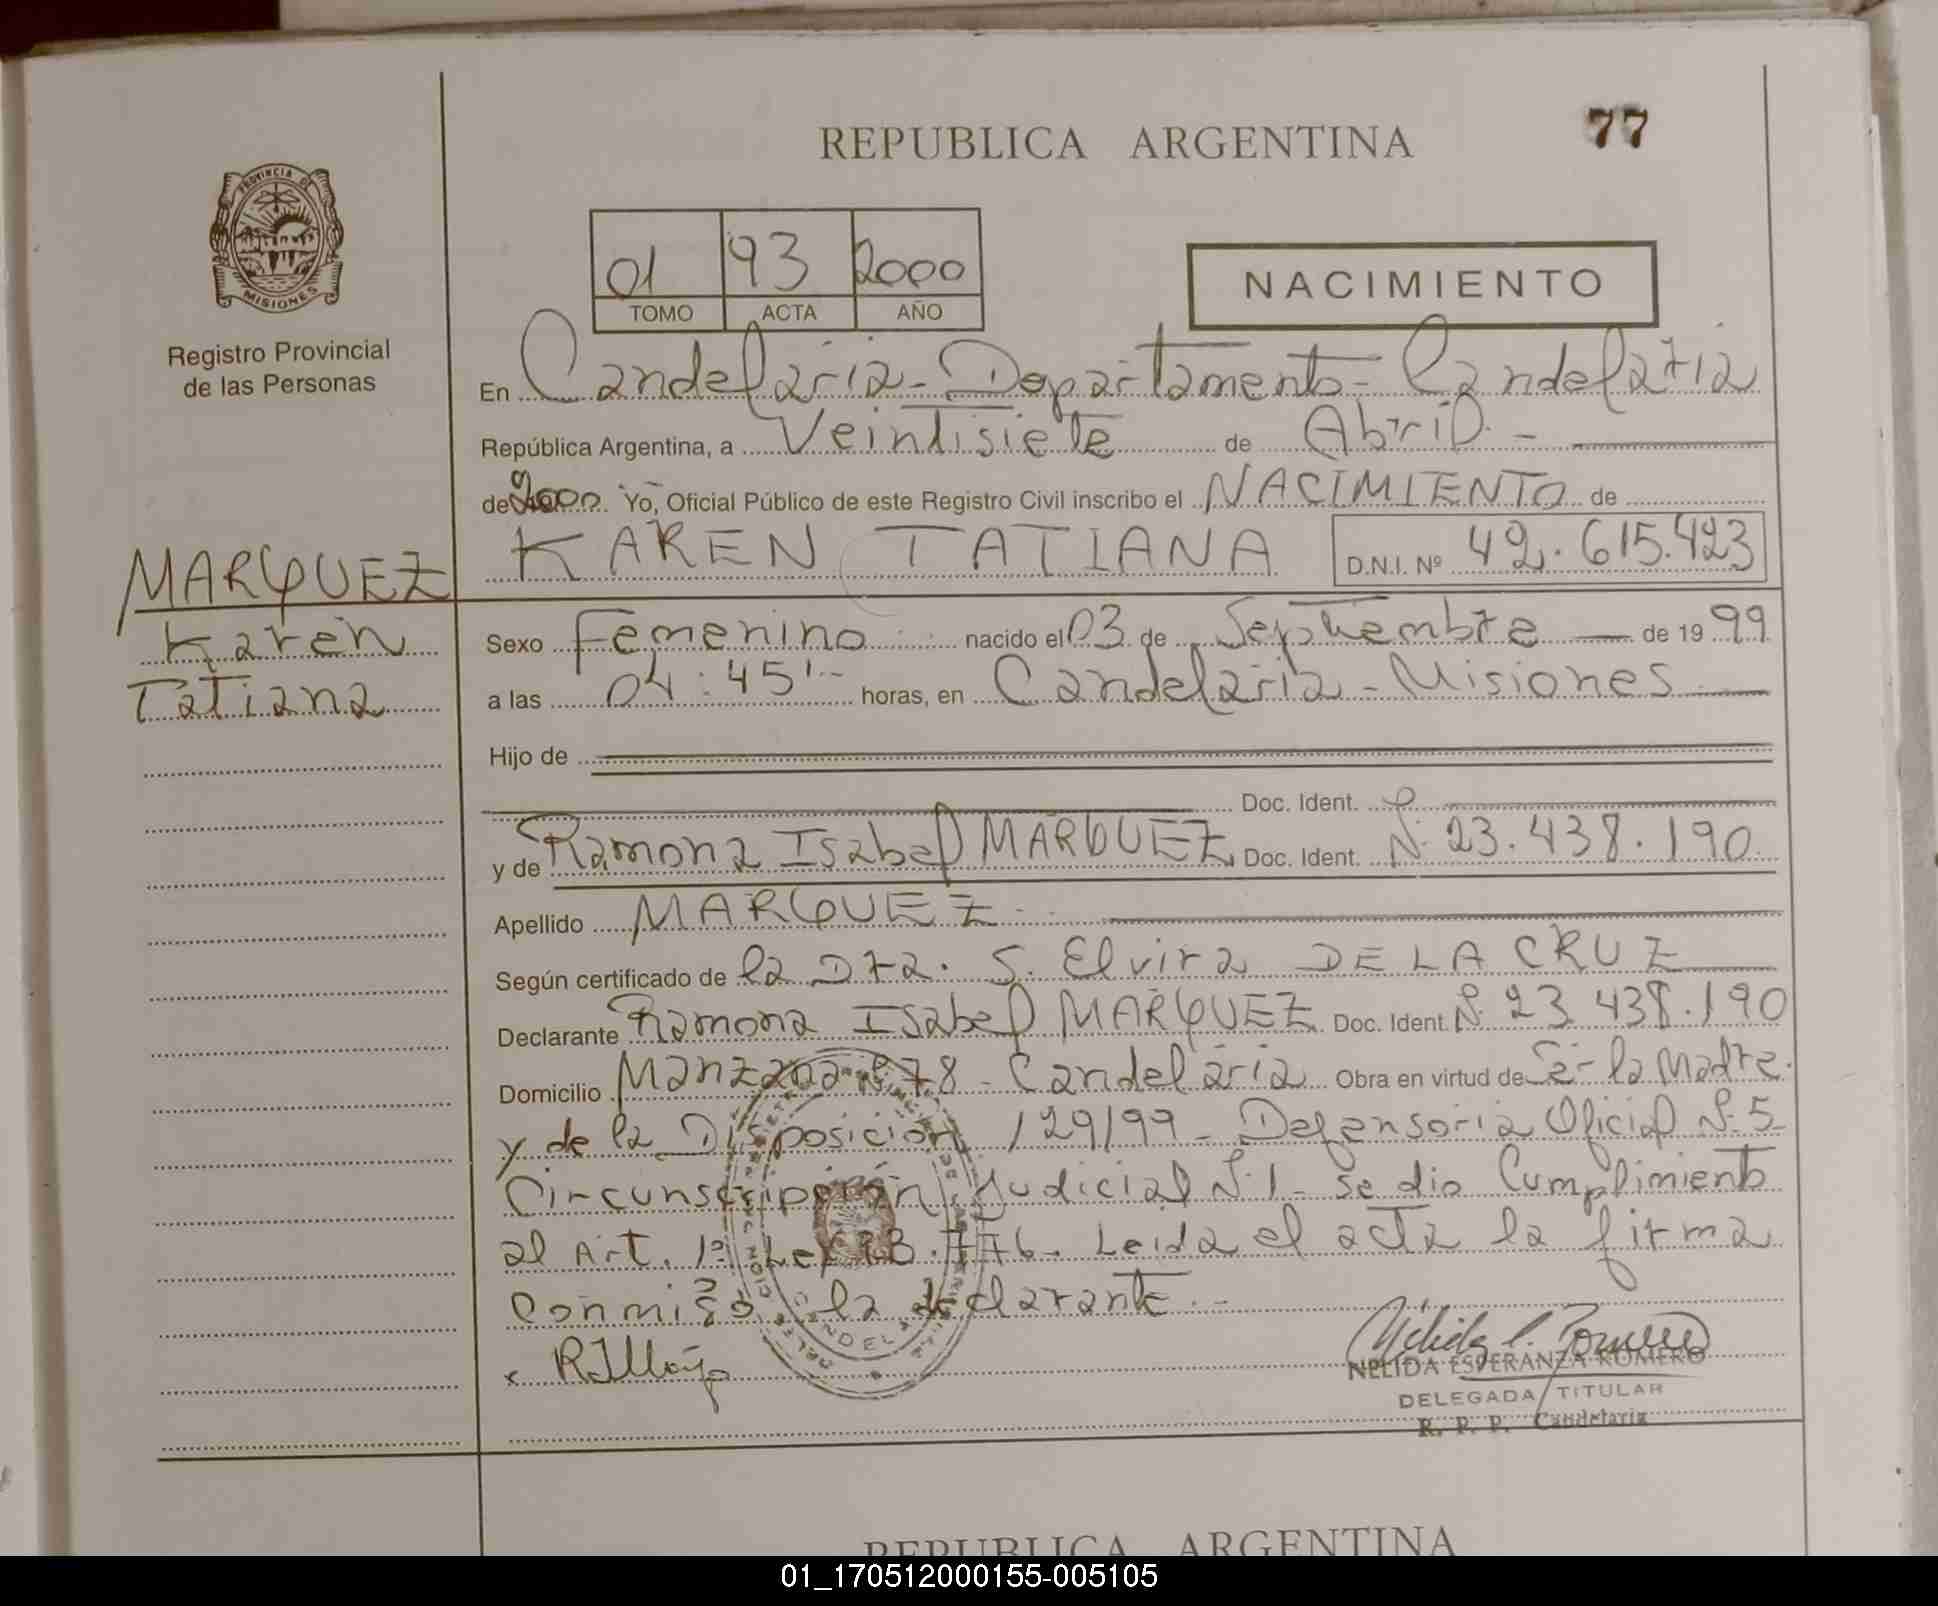 REPUBLICA ARGENTINA
77
PROVINCIA DE
MISIONES
Registro Provincial
de las Personas
01 93 2000
TOMO ACTA AÑO
NACIMIENTO
En Candelaria - Departamento - Candelaria
República Argentina, a Veintisiete de Abril -
de 2000. Yo, Oficial Público de este Registro Civil inscribo el NACIMIENTO de
KAREN TATIANA D.N.I. Nº 42.615.423
MARQUEZ
Karen
Tatiana
Sexo Femenino nacido el 03 de Septiembre de 19 99
a las 04:45'- horas, en Candelaria - Misiones
Hijo de
Doc. Ident.
y de Ramona Isabel MARQUEZ Doc. Ident. Nº 23.438.190
Apellido MARQUEZ
Según certificado de la Dra. S. Elvira DE LA CRUZ
Declarante Ramona Isabel MARQUEZ Doc. Ident. Nº 23 438.190
Domicilio Manzana Nº 78 - Candelaria Obra en virtud de Ser la Madre.
y de la Disposición 129/99 - Defensoria Oficial Nº 5
Circunscripción Judicial Nº 1 - Se dio Cumplimiento
al Art. 1º Ley 23.776. Leida el acta la firma
conmigo la declarante.-
NELIDA ESPERANZA ROMERO
DELEGADA TITULAR
R. P. P. Candelaria
REPUBLICA ARGENTINA
01_170512000155-005105